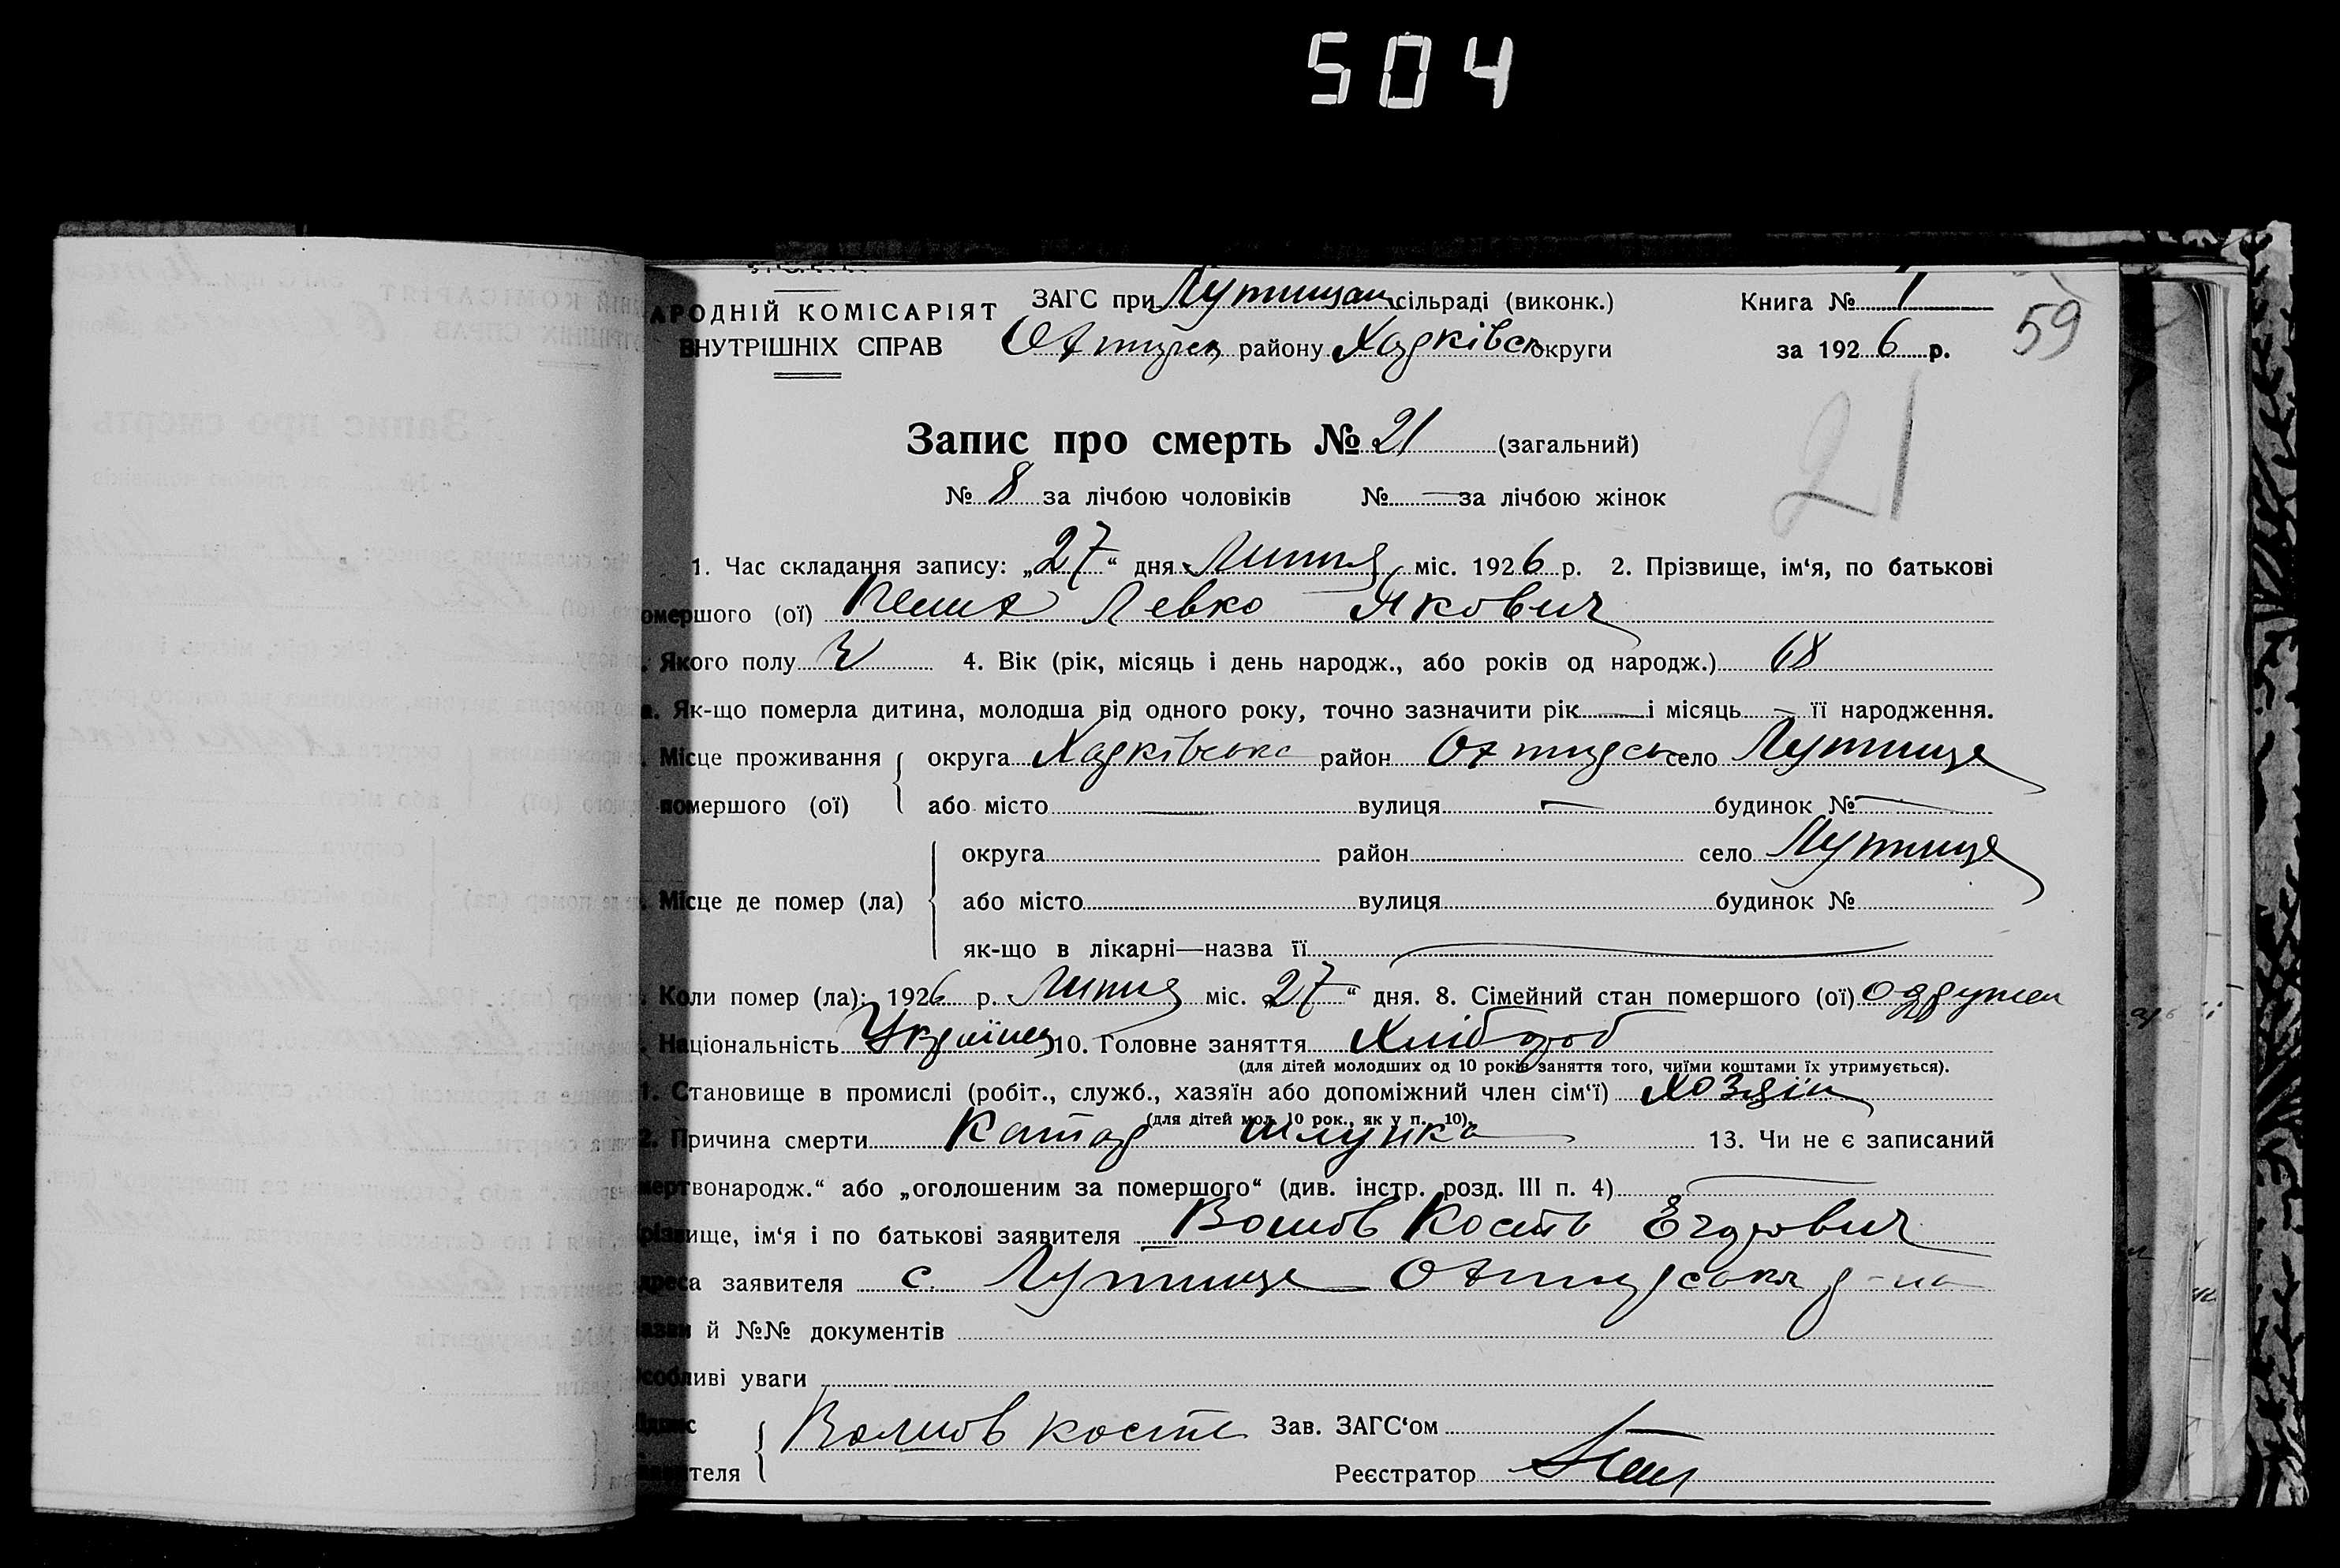 504
АРОДНІЙ КОМІСАРІЯТ
ВНУТРІШНІХ СПРАВ
ЗАГС при Лутищан сільраді (виконк.)
Охтирск району Харківськ округи
Книга № 1
за 1926 р.
59
Запис про смерть № 21 (загальний)
21
№ 8 за лічбою чоловіків № — за лічбою жінок
1. Час складання запису: „27“ дня Липня міс. 1926 р. 2. Прізвище, ім‘я, по батькові
омершого (ої) Левко Якович
. Якого полу Ч 4. Вік (рік, місяць і день народж., або років од народж.) 68
а. Як-що померла дитина, молодша від одного року, точно зазначити рік — і місяць — її народження.
. Місце проживання округа Харківська район Охтирськ село Лутище
помершого (ої) або місто — вулиця — будинок № —
округа район село Лутище
. Місце де помер (ла) або місто вулиця будинок №
як-що в лікарні—назва її —
. Коли помер (ла): 1926 р. Липня міс. „27“ дня. 8. Сімейний стан помершого (ої) одружен
. Національність Українец 10. Головне заняття Хлібороб
(для дітей молодших од 10 років заняття того, чиїми коштами їх утримується).
1. Становище в промислі (робіт., служб., хазяїн або допоміжний член сім‘ї) хозяїн
(для дітей мол. 10 рок., як у п. 10).
2. Причина смерти Катар шлунка 13. Чи не є записаний
мертвонародж.“ або „оголошеним за помершого“ (див. інстр. розд. III п. 4) —
різвище, ім‘я і по батькові заявителя Кость Егорович
дреса заявителя с. Лутище Охтирського р-на
азви й №№ документів
собливі уваги
ідпис Кость Зав. ЗАГС‘ом
явителя Реєстратор